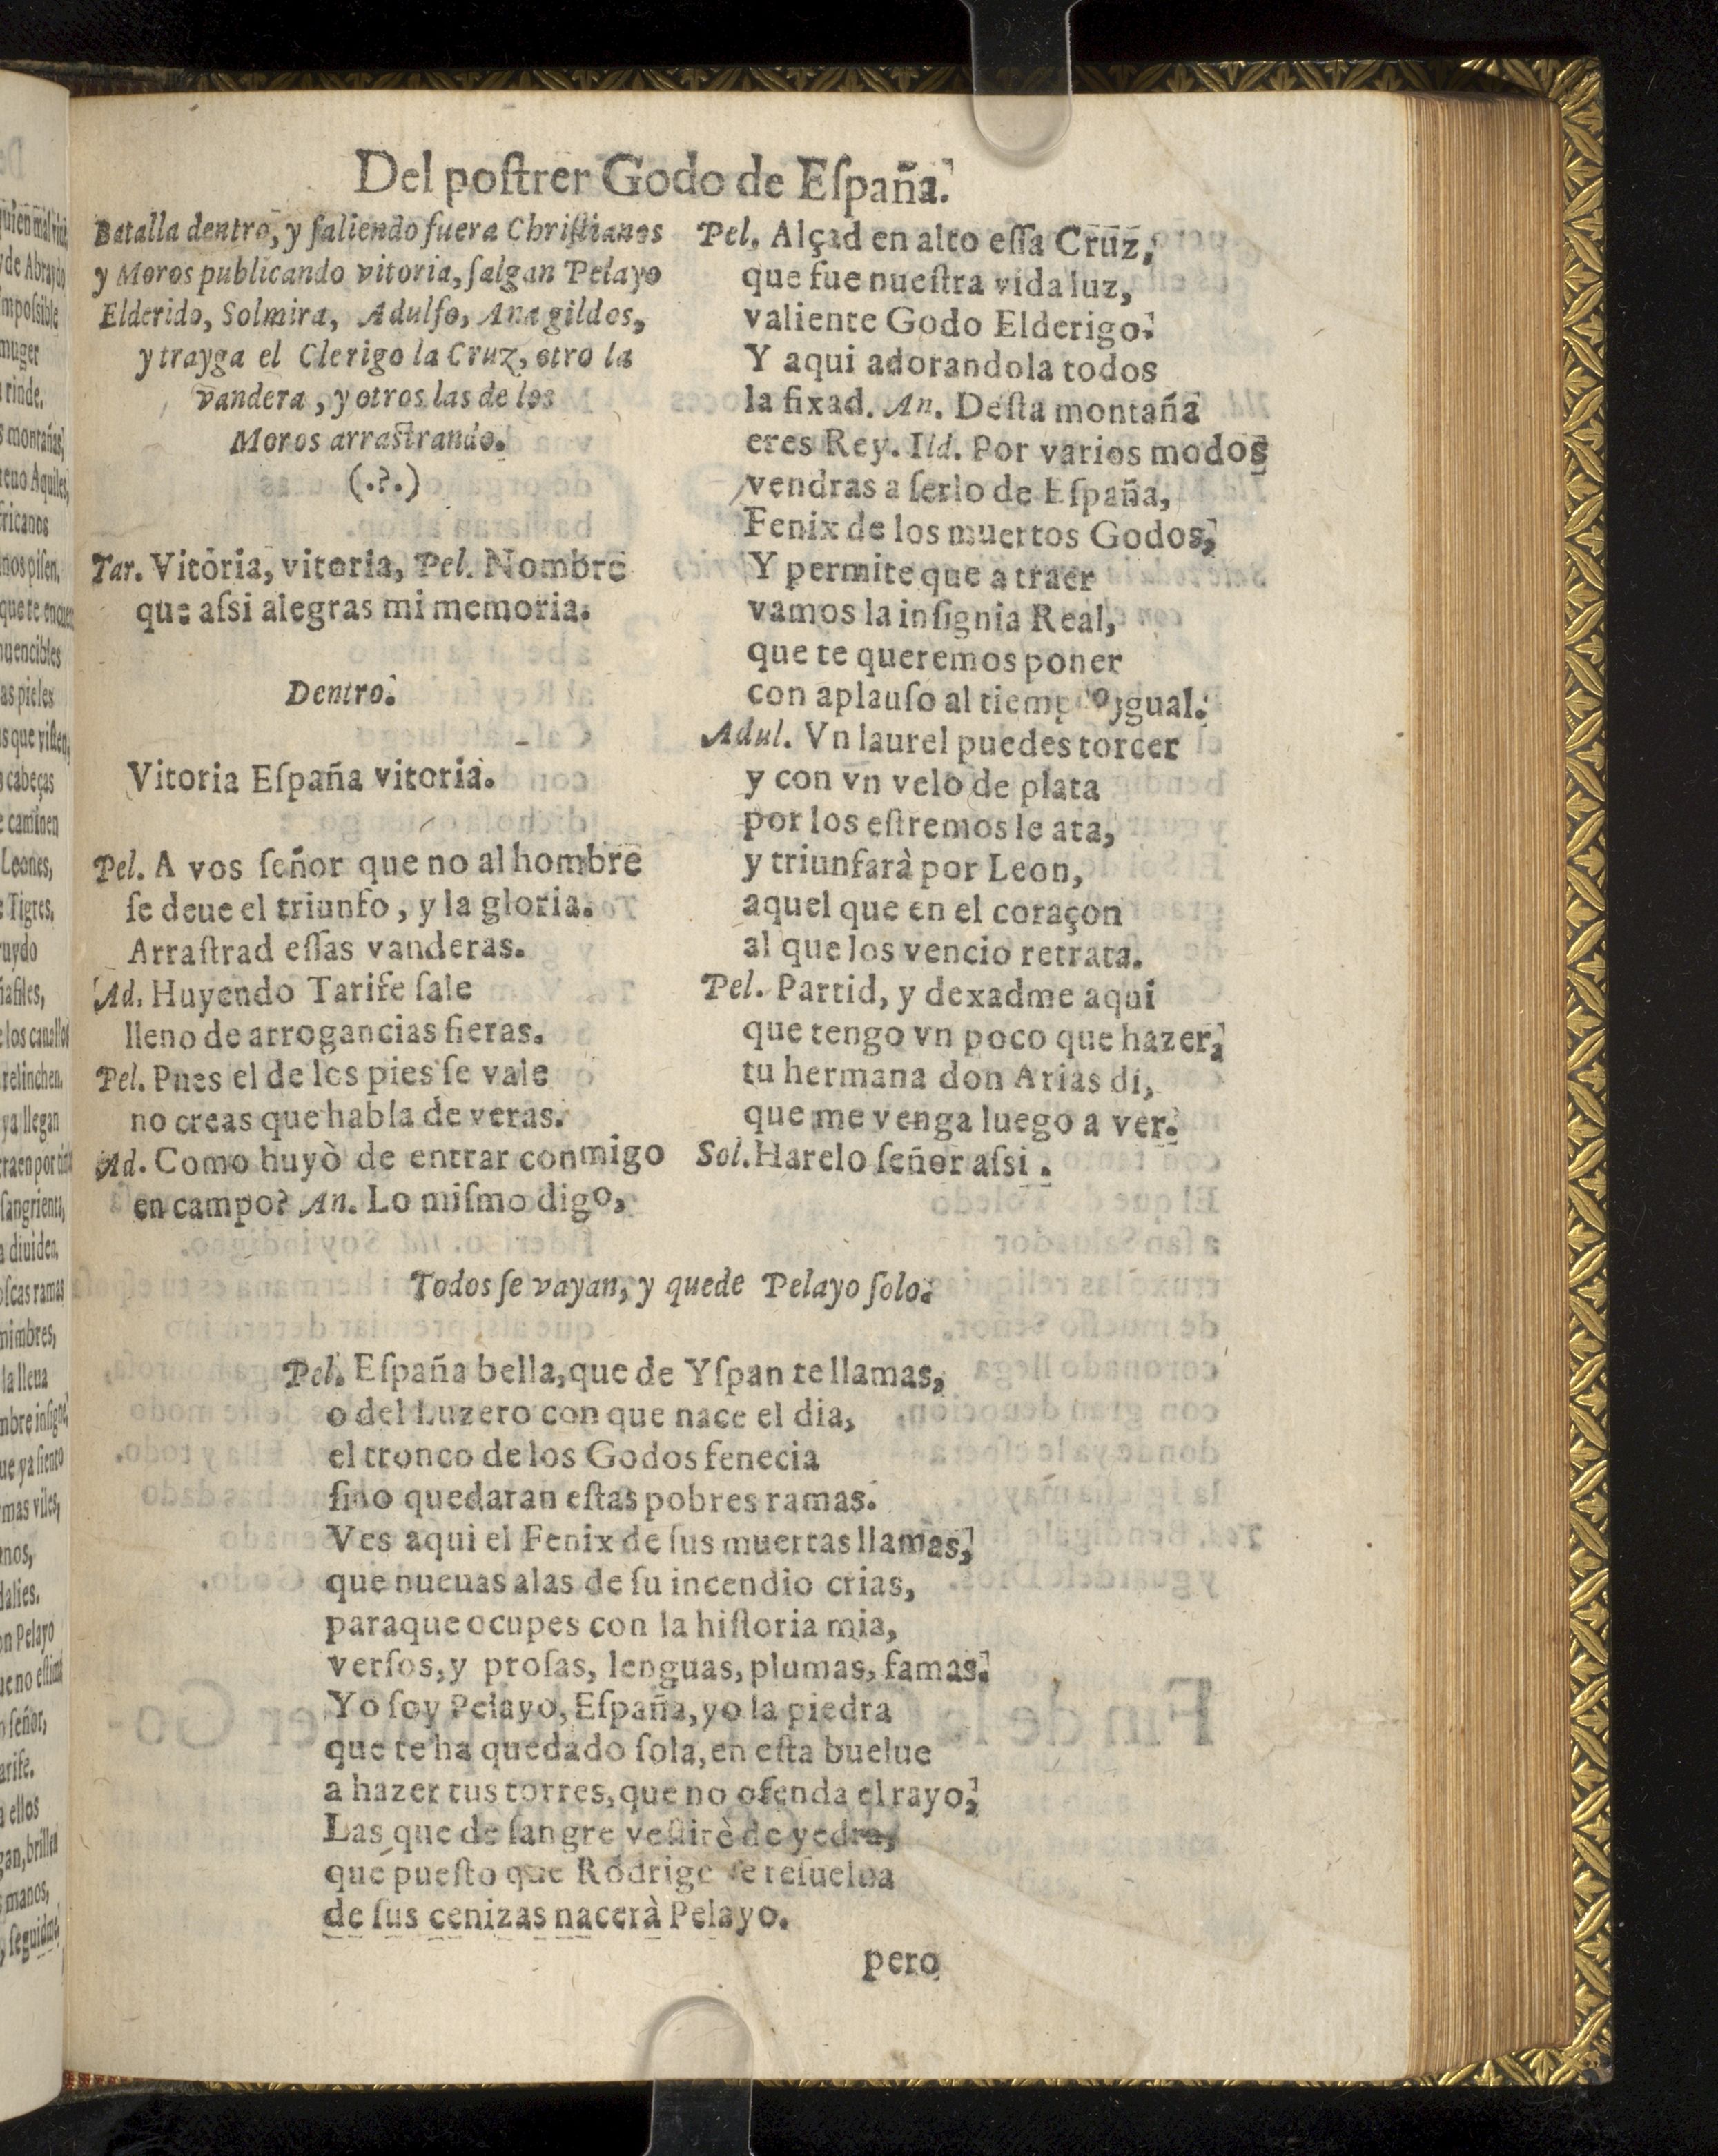 Del poſtrer Godo de Eſpaña.
Batalla dentro, y ſaliendo fuera Chriſtianos
y Moros publicando vitoria, ſalgan Pelayo
Elderido, Solmira, Adulfo, Anagildos,
y trayga el Clerigo la Cruz, otro la
vandera, y otros las de los
Moros arraſtrando.
(.?.)
Tar. Vitoria, vitoria, Pel. Nombre
que aſsi alegras mi memoria.
Dentro.
Vitoria Eſpaña vitoria.
Pel. A vos ſeñor que no al hombre
ſe deue el triunfo, y la gloria.
Arraſtrad eſſas vanderas.
Ad. Huyendo Tarife ſale
lleno de arrogancias fieras.
Pel. Pues el de los pies ſe vale
no creas que habla de veras.
Ad. Como huyò de entrar conmigo
en campo? An. Lo miſmo digo,
Pel. Alçad en alto eſſa Cruz,
que fue nueſtra vida luz,
valiente Godo Elderigo.
Y aqui adorandola todos
la fixad. An. Deſta montaña
eres Rey. Ild. Por varios modos
vendras a ſerlo de Eſpaña,
Fenix de los muertos Godos,
Y permite que a traer
vamos la inſignia Real,
que te queremos poner
con aplauſo al tiempo ygual.
Adul. Vn laurel puedes torcer
y con vn velo de plata
por los eſtremos le ata,
y triunfarà por Leon,
aquel que en el coraçon
al que los vencio retrata.
Pel. Partid, y dexadme aqui
que tengo vn poco que hazer,
tu hermana don Arias di,
que me venga luego a ver.
Sol. Harelo ſeñor aſsi.
Todos ſe vayan, y quede Pelayo ſolo.
Pel. Eſpaña bella, que de Yſpan te llamas,
o del Luzero con que nace el dia,
el tronco de los Godos fenecia
ſino quedaran eſtas pobres ramas.
Ves aqui el Fenix de ſus muertas llamas,
que nueuas alas de ſu incendio crias,
paraque ocupes con la hiſtoria mia,
verſos, y proſas, lenguas, plumas, famas.
Yo ſoy Pelayo, Eſpaña, yo la piedra
que te ha quedado ſola, en eſta buelue
a hazer tus torres, que no ofenda el rayo,
Las que de ſangre veſtirè de yedra,
que pueſto que Rodrigo ſe reſuelua
de ſus cenizas nacerà Pelayo.
pero